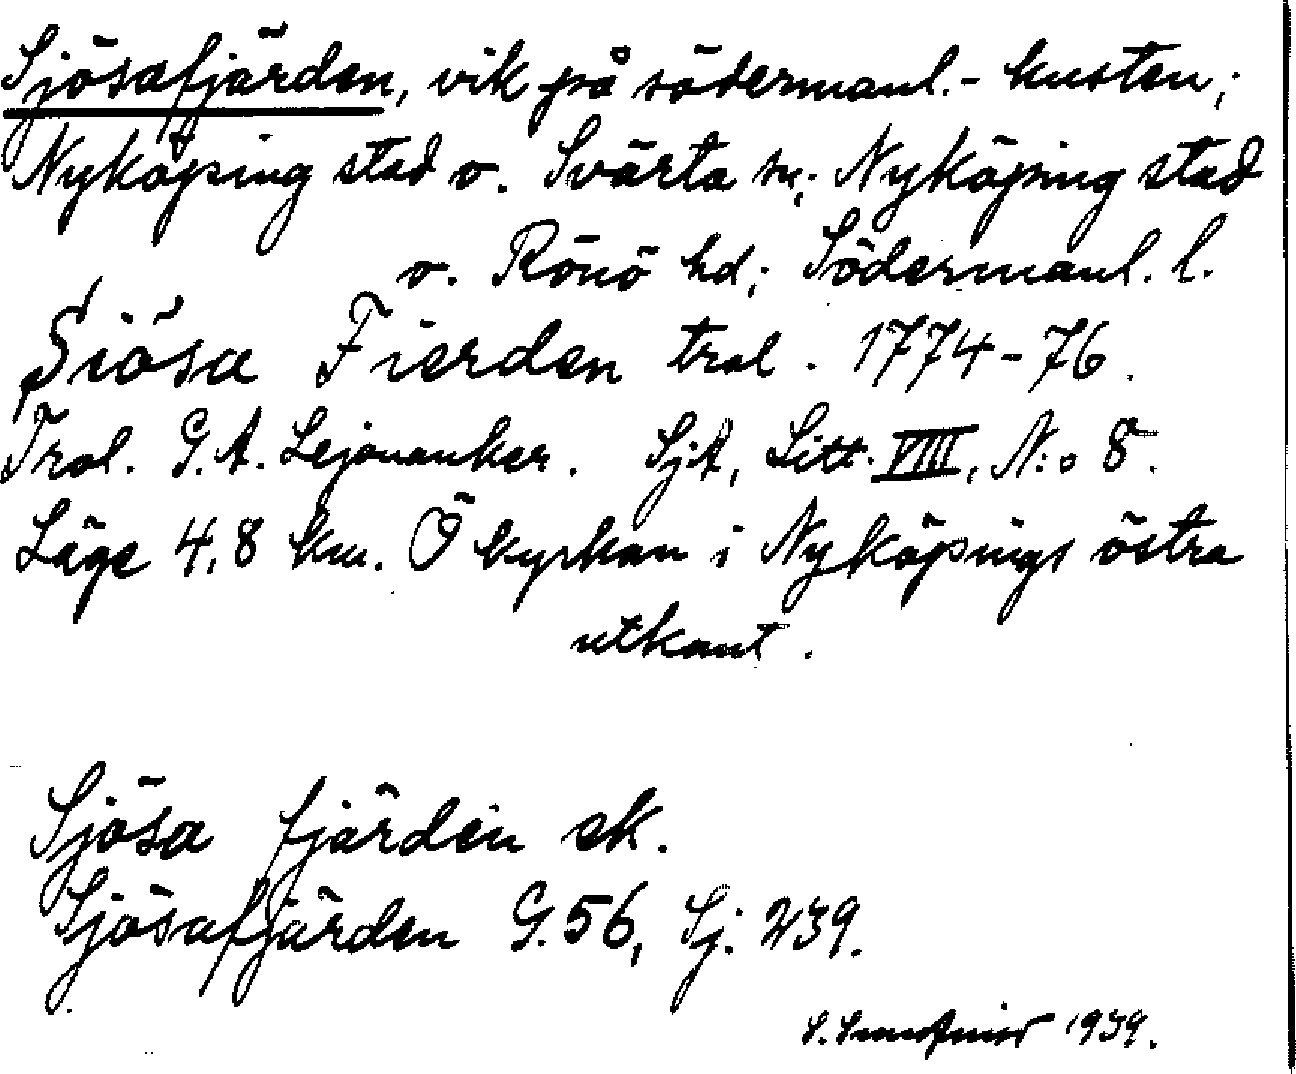 Sjösafjärden, vik på södermanl.- kusten;
Nyköping stad o. Svärta sn; Nyköping stad
o. Rönö hd; Södermanl. l.
Siösa Fierden trol. 1774-76.
Trol. G. A. Lejonanker. SjA, Litt. VIII, N:o 8.
Läge 4,8 km. Ö kyrkan i Nyköpings östra
utkant.
Sjösa fjärden ek.
Sjösafjärden G. 56, Sj. 239.
S. 1939.